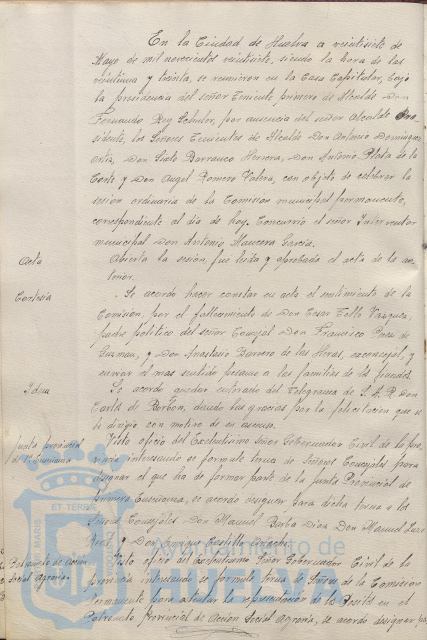 En la Ciudad de Huelva a veintisiete de
Mayo de mil novecientos veintisiete, siendo la hora de las
veintiuna y treinta, se reunieron en la Casa Capitular, bajo
la presidencia del señor Teniente primero de Alcalde Don
Fernando Rey, por ausencia del señor Alcalde Pre-
sidente, los Señores Tenientes de Alcalde Don Antonio Dominguez
Ortiz, Don Sixto Barranco Herrera, Don Antonio Plata de la
Corte y Don Angel Romero Valera, con objeto de celebrar la
sesión ordinaria de la Comision municipal permanente,
correspondiente al dia de hoy. Concurrió el señor Interventor
municipal Don Antonio Mancera Garcia.
Acta
Abierta la sesión, fue leida y aprobada el acta de la an-
terior.
Cortesia
Se acordó hacer constar en acta el sentimiento de la
Comisión, por el fallecimiento de Don Cesar Tello Vazquez,
padre politico del señor Concejal Don Francisco de
Guzman, y Don Anastasio Barrero de las Heras, exconcejal, y
enviar el mas sentido pésame a las familias de los finados.
Idem
Se acordó quedar enterado del Telegrama de S. A. R. Don
Carlos de Borbón, dando las gracias por la felicitacion que se
le dirigio con motivo de su ascenso.
Junta provincial
de 1ª Enseñanza
Visto oficio del Excelentisimo Señor Gobernador Civil de la pro-
vincia interesando se formule terna de Señores Concejales para
designar el que ha de formar parte de la Junta Provincial de
primera Enseñanza, se acordó designar para dicha terna a los
Señores Concejales Don Manuel Barba Diaz Don Manuel
y Don Enrique Castilla
Patronato de Accion
Social Agraria.
Visto oficio del Excelentisimo Señor Gobernador Civil de la
provincia interesando se formule terna de Señores de la Comision
Permanente para ostentar la representación de la en el
Patronato Provincial de Acción Social Agraria, se acordó designar
ET TERRE
MARIS
Ayuntamiento de